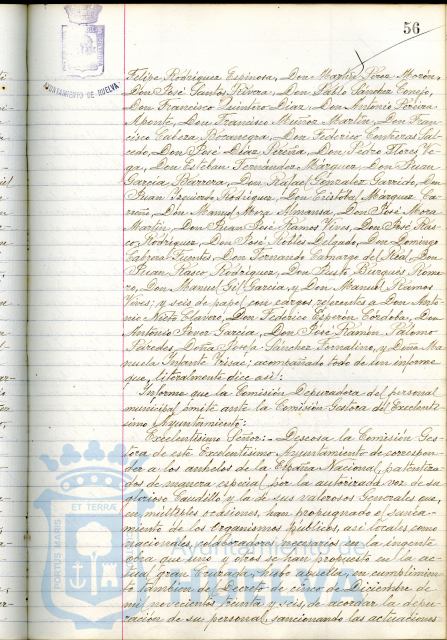 56
AYUNTAMIENTO DE HUELVA
Felipe Rodríguez Espinosa, Don Martín Pérez Morón,
Don José Santos Rivera, Don Pablo Sánchez Conejo,
Don Francisco Quintero Díaz, Don Antonio Pereira
Aponte, Don Francisco Muñoz Martín, Don Fran-
cisco Cabeza Bocanegra, Don Federico Contreras Sal-
cedo, Don José Díaz Pereña, Don Pedro Flores Ve-
ga, Don Esteban Fernández Márquez, Don Juan
García Barrera, Don Rafael González Garrido, Don
Juan Izquierdo Rodríguez, Don Cristóbal Márquez Ca-
rreño, Don Manuel Mora Almansa, Don José Mora
Martín, Don Juan José Ramos Vives, Don José Ras-
co Rodríguez, Don José Robles Delgado, Don Domingo
Cabrera Fuentes, Don Fernando Camargo del Real, Don
Juan Rasco Rodríguez, Don Justo Burgués Rome-
ro, Don Manuel Gil García, y Don Manuel Ramos
Vives; y seis de papel con cargos referentes a Don Anto-
nio Nieto Clavero, Don Federico Esperón Córdoba, Don
Antonio Jover García, Don José Ramón Palomo
Paredes, Doña Josefa Sánchez Tornatino, y Doña Ma-
nuela Infante; acompañado todo de un informe
que, literalmente dice así:
Informe que la Comisión Depuradora del personal
municipal emite ante la Comisión Gestora del Excelentí-
simo Ayuntamiento:
Excelentísimo Señor:- Deseosa la Comisión Ges-
tora de este Excelentísimo Ayuntamiento de correspon-
der a los anhelos de la España Nacional, patentiza-
dos de manera especial por la autorizada voz de su
glorioso Caudillo y la de sus valerosos Generales que,
en múltiples ocasiones, han propugnado el sanea-
miento de los Organismos públicos, así locales como
nacionales, colaboradores necesarios en la ingente
obra que unos y otros se han propuesto en la ac-
tual gran Cruzada, hubo aquélla, en cumplimien-
to también del Decreto de cinco de Diciembre de
mil novecientos treinta y seis, de acordar la depu-
ración de su personal, sancionando las actuaciones
PORTUS MARIS ET TERRAE
Ayuntamiento de
HUELVA